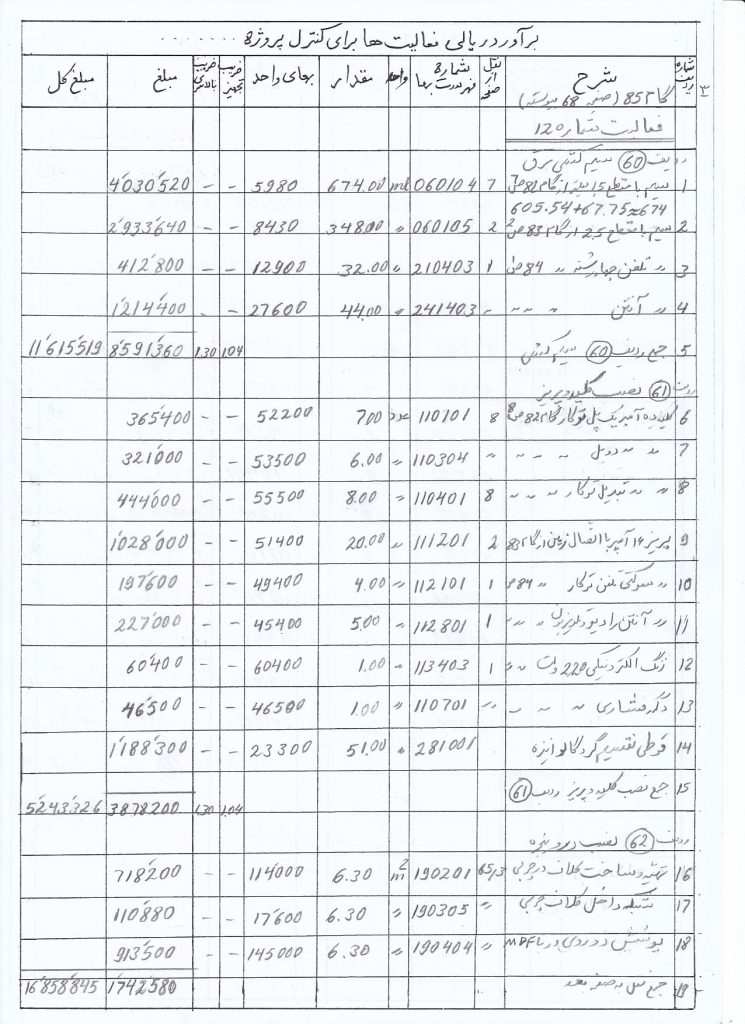 برآورد ریالی فعالیت ها برای کنترل پروژه
شماره ردیف شرح نقل از صفحه شماره فهرست بها واحد مقدار بهای واحد مبلغ ضریب تجهیز ضریب بالاسری مبلغ کل
۳
گام 85 (صفحه 68 پیوسته)
فعالیت شماره 120
ردیف 60 سیم کشی برق
1 سیم با مقطع 1,5 از گام 81 ص 7 060104 ml 674.00 5980 - - 4'030'520
605.54+67.75≈674
2 سیم با مقطع 2,5 از گام 83 ص 2 2 060105 〃 348.00 8430 - - 2'933'640
3 〃 تلفن چهار رشته 〃 84 ص 1 1 210403 〃 32.00 12900 - - 412'800
4 〃 آنتن 〃 〃 〃 〃 241403 〃 44.00 27600 - - 1'214'400
5 جمع ردیف 60 سیم کشی 1.04 1.30 8'591'360 11'615'519
ردیف 61 نصب کلید و پریز
6 کلید ده آمپر یک پل توکار گام 82 ص 8 8 110101 عدد 7.00 52200 - - 365'400
7 〃 〃 دوپل 〃 〃 〃 〃 110304 〃 6.00 53500 - - 321'000
8 〃 〃 تبدیل توکار 〃 〃 〃 8 110401 〃 8.00 55500 - - 444'000
9 پریز 16 آمپر با اتصال زمین از گام 83 2 111201 〃 20.00 51400 - - 1'028'000
10 〃 سوکتی تلفن توکار 〃 84 ص 1 112101 〃 4.00 49400 - - 197'600
11 〃 آنتن رادیو تلویزیون 〃 〃 1 112801 〃 5.00 45400 - - 227'000
12 زنگ الکترونیکی 220 ولت 〃 〃 1 113403 〃 1.00 60400 - - 60'400
13 دگمه فشاری 〃 〃 〃 〃 110701 〃 1.00 46500 - - 46'500
14 قوطی تقسیم گرد گالوانیزه 281001 〃 51.00 23300 - - 1'188'300
15 جمع نصب کلید و پریز ردیف 61 1.04 1.30 3878200 5'243'326
ردیف 62 نصب در و پنجره
16 تهیه و ساخت کلاف در چوبی 65/3 190201 m2 6.30 114000 - - 718'200
17 شبکه داخل کلاف چوبی 〃 190305 〃 6.30 17600 - - 110'880
18 پوشش دو روی در با MDF 〃 190404 〃 6.30 145000 - - 913'500
19 جمع نقل به صفحه بعد 1'742'580 16'858'845